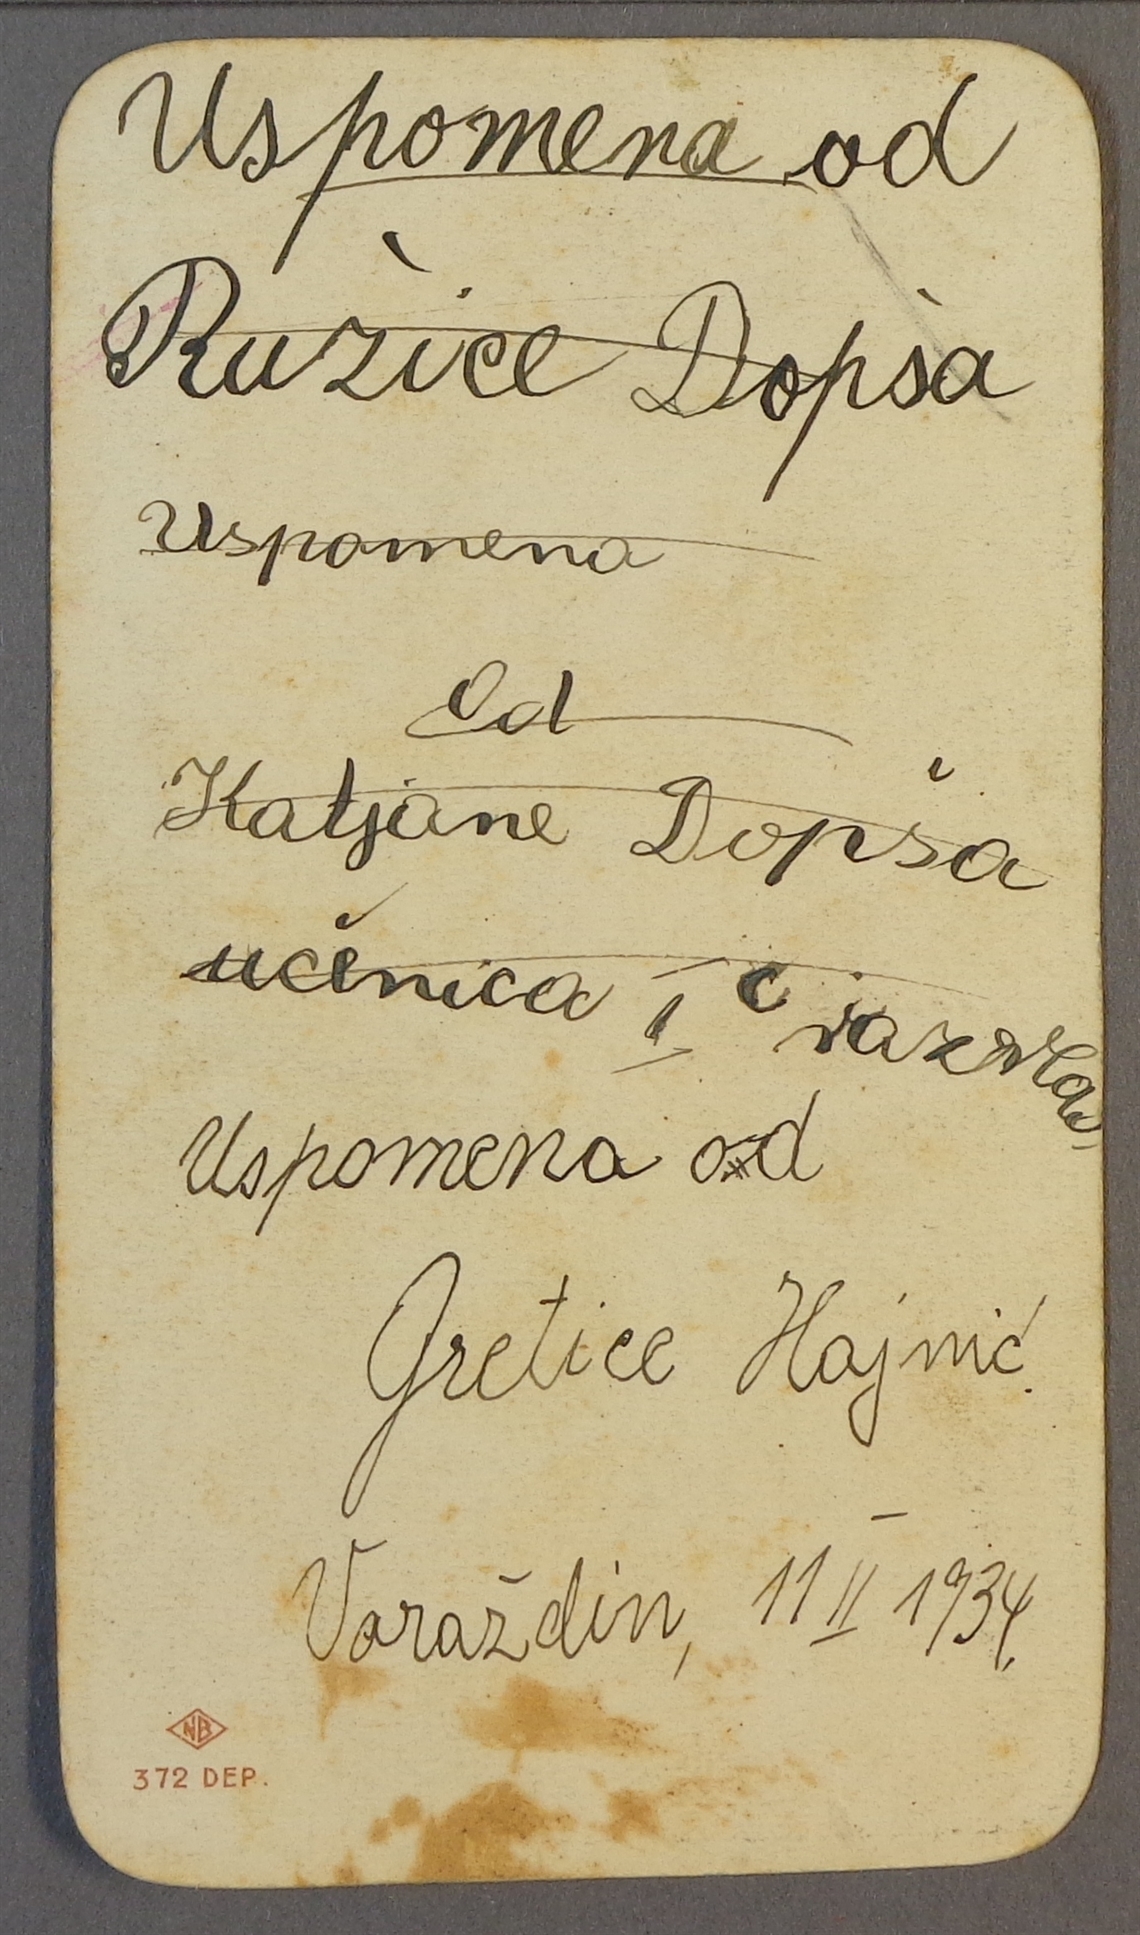 Uspomena od
Ružice Dopša
Uspomena
Od
Katjane Dopša
učenica I c razreda
Uspomena od
Gretice Hajnić.
Varaždin, 11 II 1934.
NB
372 DEP.